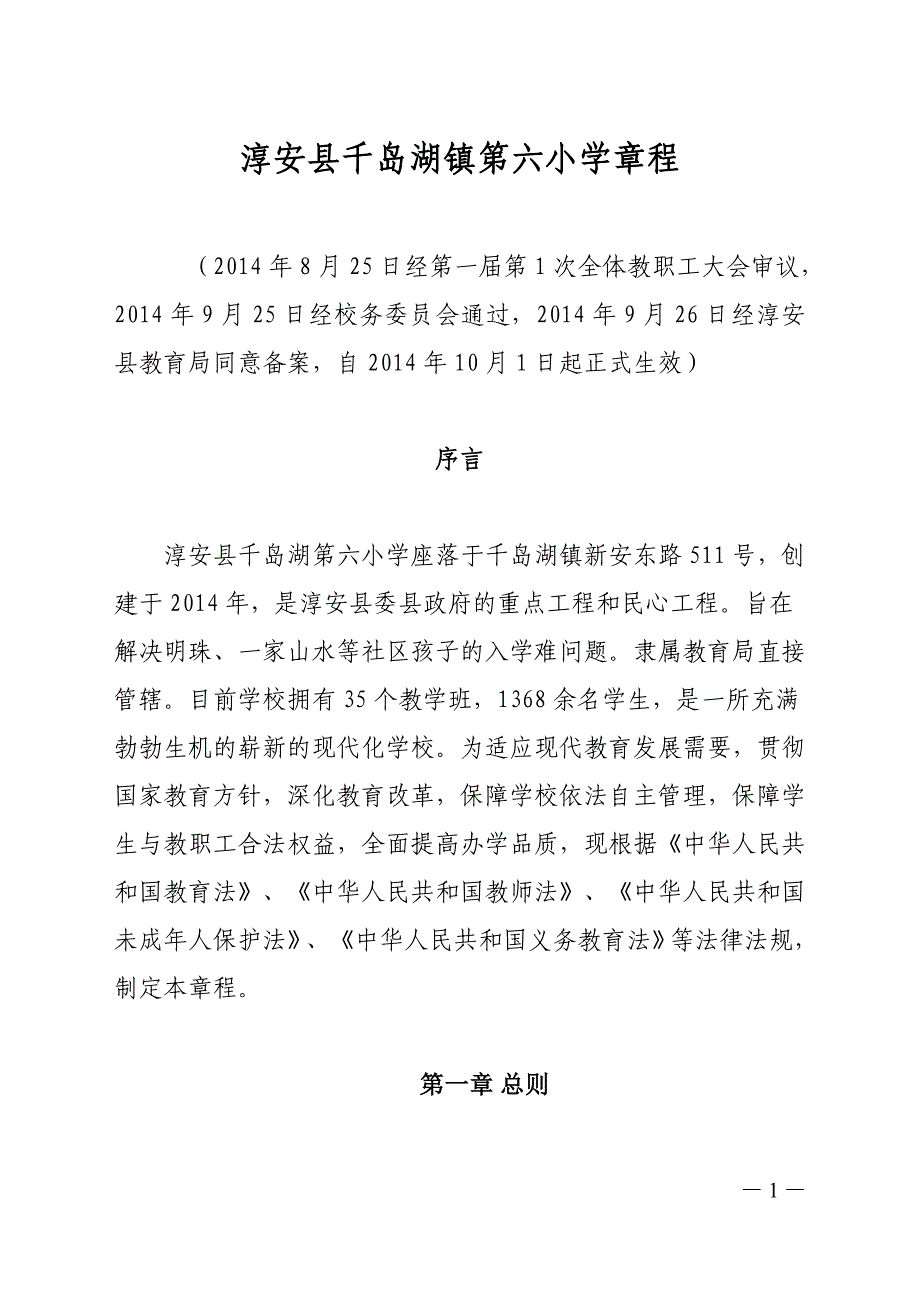 淳安县千岛湖镇第六小学章程
（2014 年 8 月 25 日经第一届第 1 次全体教职工大会审议，
2014 年 9 月 25 日经校务委员会通过，2014 年 9 月 26 日经淳安
县教育局同意备案，自 2014 年 10 月 1 日起正式生效）
序言
淳安县千岛湖第六小学座落于千岛湖镇新安东路 511 号，创
建于 2014 年，是淳安县委县政府的重点工程和民心工程。旨在
解决明珠、一家山水等社区孩子的入学难问题。隶属教育局直接
管辖。目前学校拥有 35 个教学班，1368 余名学生，是一所充满
勃勃生机的崭新的现代化学校。为适应现代教育发展需要，贯彻
国家教育方针，深化教育改革，保障学校依法自主管理，保障学
生与教职工合法权益，全面提高办学品质，现根据《中华人民共
和国教育法》、《中华人民共和国教师法》、《中华人民共和国
未成年人保护法》、《中华人民共和国义务教育法》等法律法规，
制定本章程。
第一章 总则
— 1 —